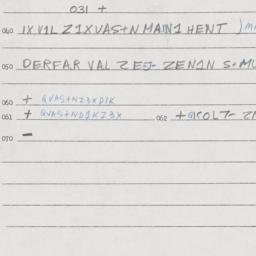 031 +
040 IXVIL Z1XVAS+N MAIN1 HENT )M
050 DERFAR VAL ZEJ- ZEN1N S+MU
060 + QVAS+NZ3XD1K
061 + QVAS+ND1KZ3X 062 + QCOL7- Z
070 –